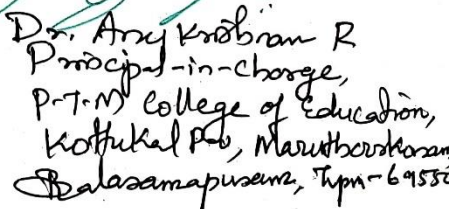 Dr. Any Krishnan R
Principal-in-Charge,
P.T.M College of Education,
Kottukal P.O, Maruthoorkonam
Balaramapuram, Tvpm-69550